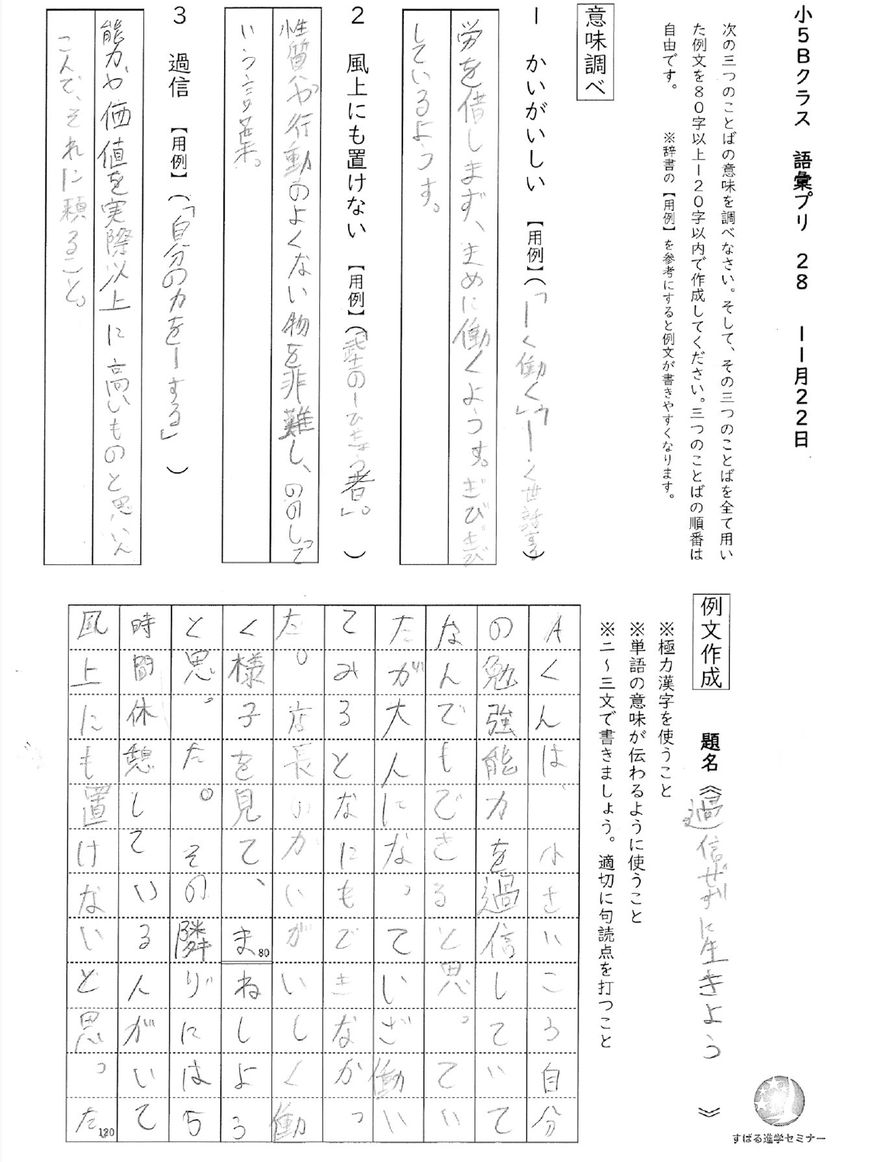 小5Bクラス 語彙プリ 28 11月22日
次の三つのことばの意味を調べなさい。そして、その三つのことばを全て用い
た例文を80字以上120字以内で作成してください。三つのことばの順番は
自由です。 ※辞書の【用例】を参考にすると例文が書きやすくなります。
意味調べ
1 かいがいしい 【用例】(「ーく働く」「ーく世話する」)
労を惜しまず、まめに働くようす。きびきび
しているようす。
2 風上にも置けない 【用例】(「武士のーひきょう者」。)
性質や行動のよくない物を非難し、ののしって
いう言葉。
3 過信 【用例】(「自分の力をーする」)
能力や価値を実際以上に高いものと思いん
こんで、それに頼ること。
例文作成 題名《過信せずに生きよう》
※極力漢字を使うこと
※単語の意味が伝わるように使うこと
※二～三文で書きましょう。適切に句読点を打つこと
Aくんは、小さいころ自分
の勉強能力を過信していて
なんでもできると思ってい
たが大人になっていざ働い
てみるとなにもできなかっ
た。店長のかいがいしく働
く様子を見て、まねしよう
と思った。その隣りには5
時間休憩している人がいて
風上にも置けないと思った
80
120
すばる進学セミナー